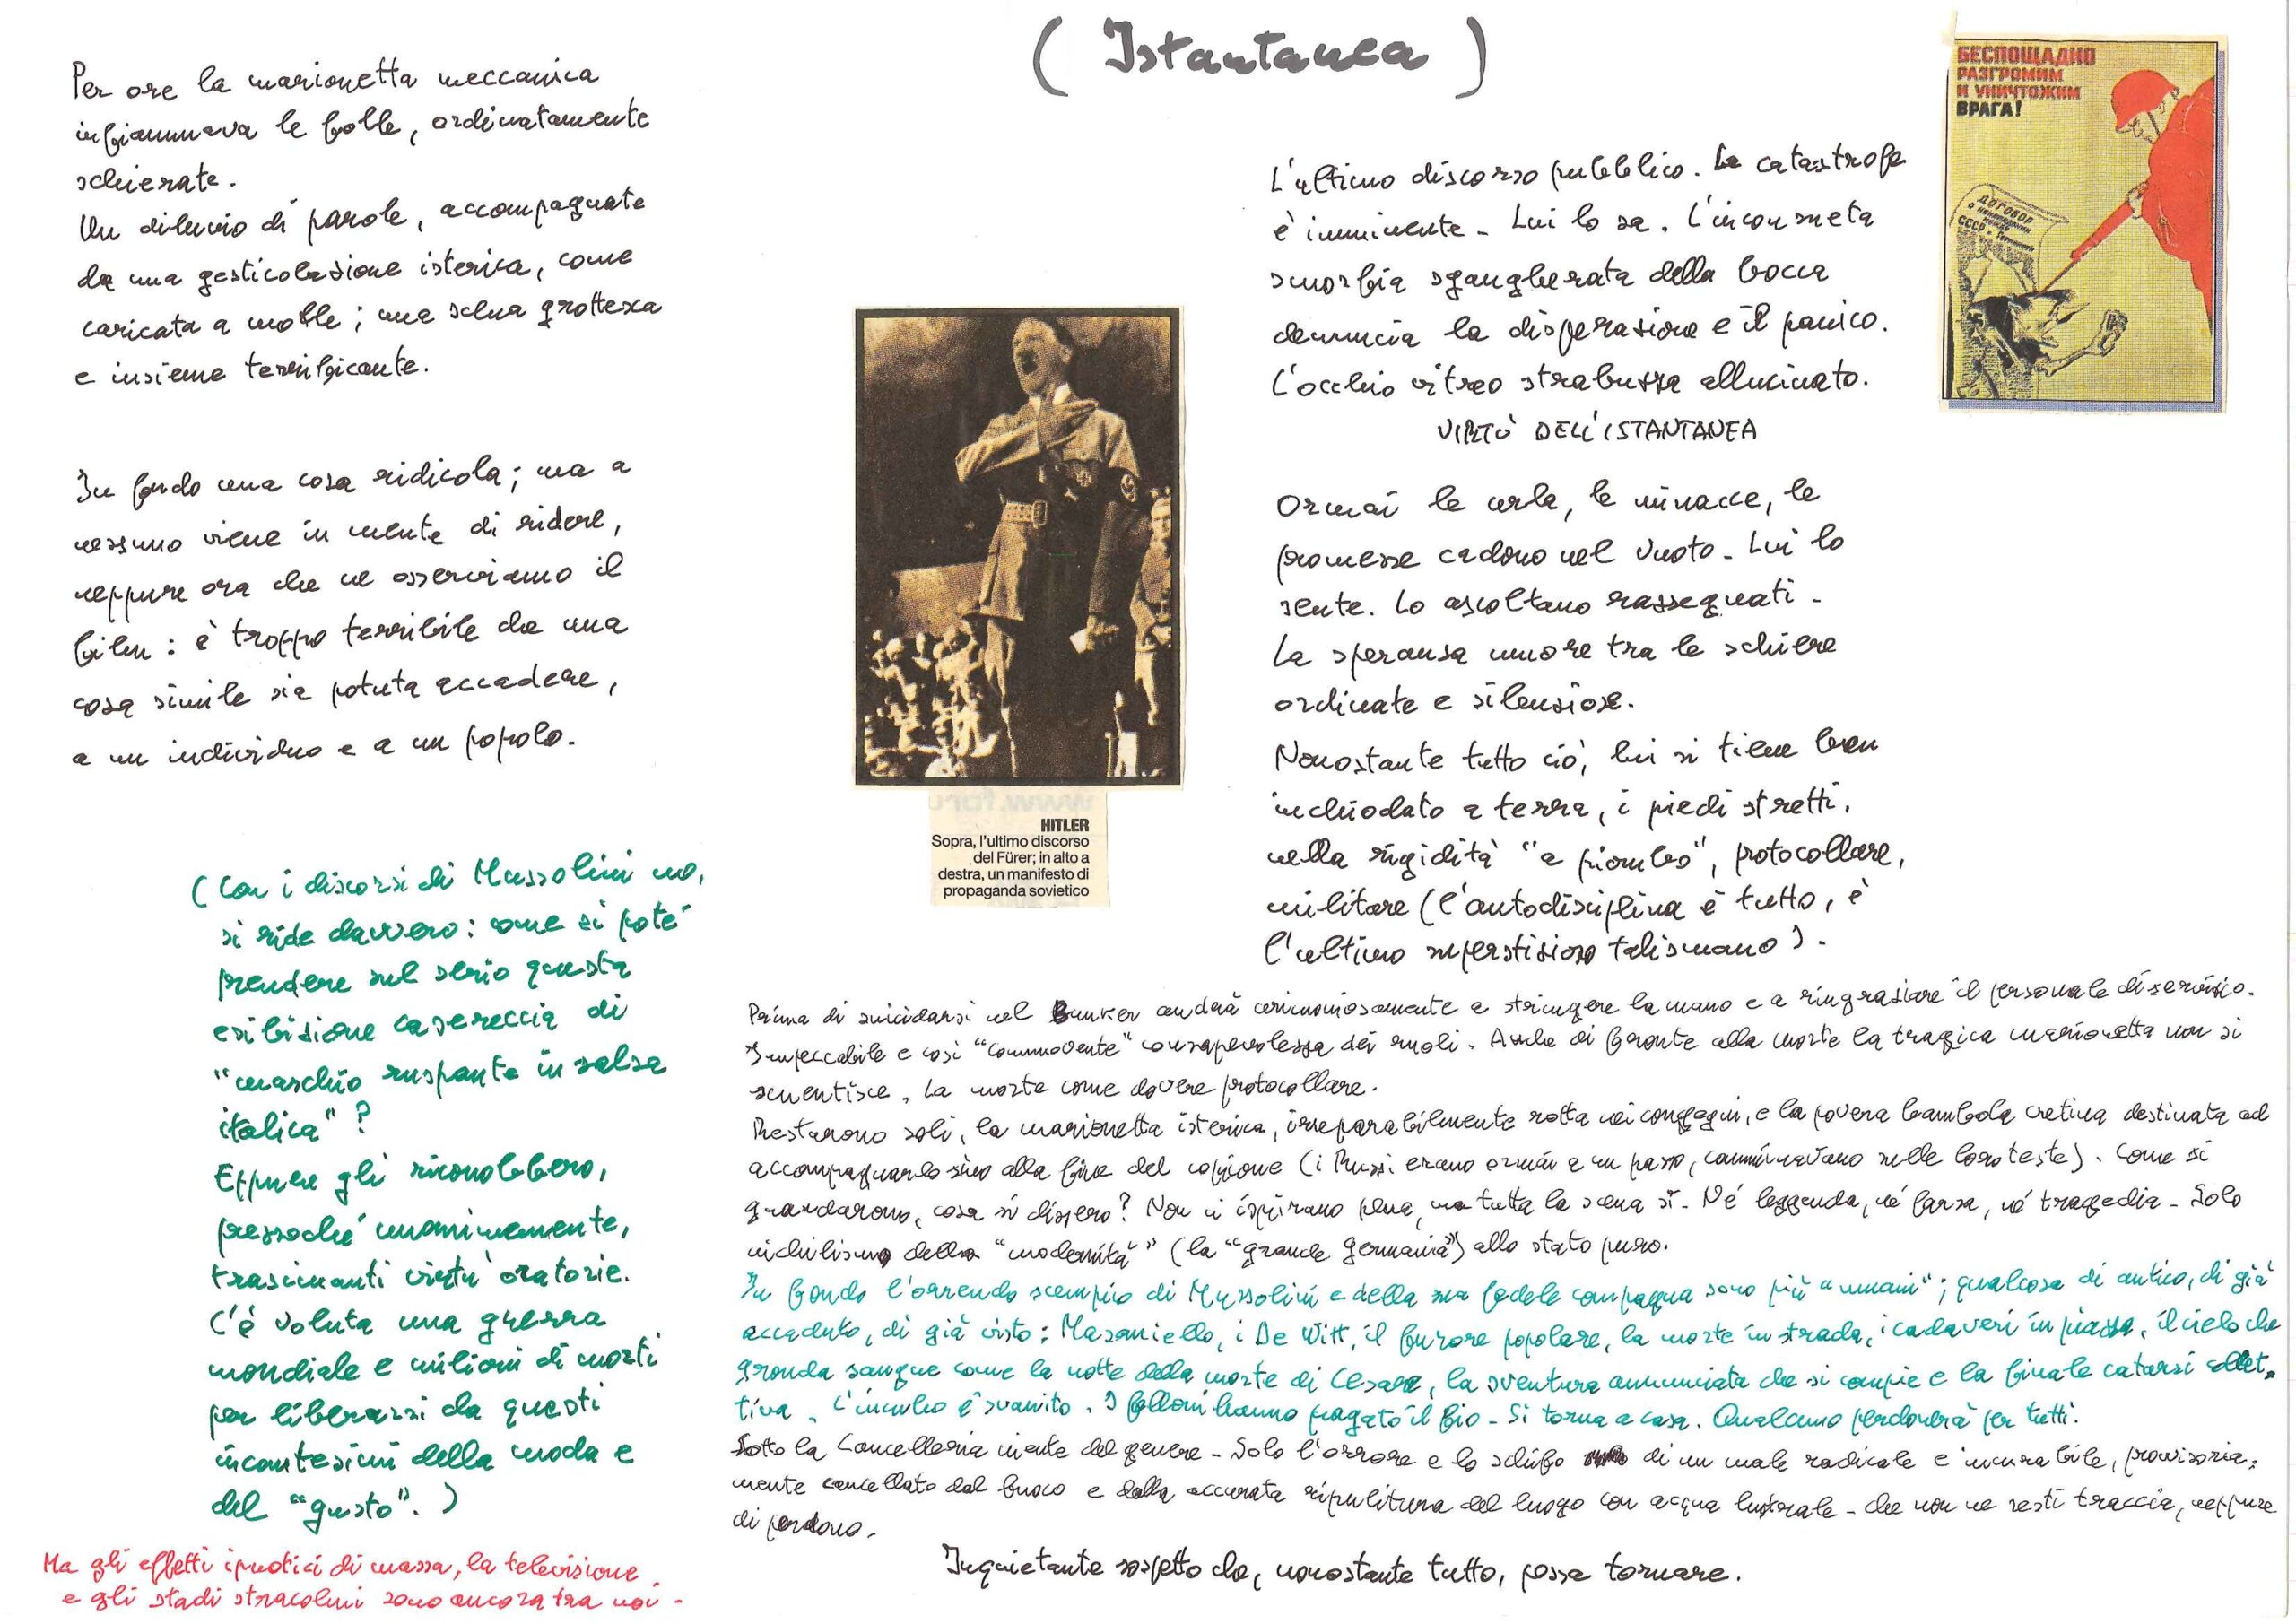 ( Istantanea )
Per ore la marionetta meccanica
infiammava le folle, ordinatamente
schierate.
Un diluvio di parole, accompagnate
da una gesticolazione isterica, come
caricata a molle; una scena grottesca
e insieme terrificante.
In fondo una cosa ridicola; ma a
nessuno viene in mente di ridere,
neppure ora che ne osserviamo il
film: è troppo terribile che una
cosa simile sia potuta accadere,
a un individuo e a un popolo.
(Con i discorsi di Mussolini no,
si ride davvero: come si poté
prendere sul serio questa
esibizione casereccia di
"maschio ruspante in salsa
italica"?
Eppure gli riconobbero,
pressoché unanimemente,
trascinanti virtù oratorie.
C'è voluta una guerra
mondiale e milioni di morti
per liberarsi da questi
incantesimi della moda e
del "gusto".)
Ma gli effetti ipnotici di massa, la televisione
e gli stadi stracolmi sono ancora tra noi.
HITLER
Sopra, l'ultimo discorso
del Fürer; in alto a
destra, un manifesto di
propaganda sovietico
L'ultimo discorso pubblico. La catastrofe
è imminente. Lui lo sa. L'inconsueta
smorfia sgangherata della bocca
denuncia la disperazione e il panico.
L'occhio vitreo strabuzza allucinato.
VIRTÙ DELL'ISTANTANEA
Ormai le urla, le minacce, le
promesse cadono nel vuoto. Lui lo
sente. Lo ascoltano rassegnati.
La speranza muore tra le schiere
ordinate e silenziose.
Nonostante tutto ciò, lui si tiene ben
inchiodato a terra, i piedi stretti,
nella rigidità "a piombo", protocollare,
militare (l'autodisciplina è tutto, è
l'ultimo superstizioso talismano).
Prima di suicidarsi nel Bunker andrà cerimoniosamente a stringere la mano e a ringraziare il personale di servizio.
Impeccabile e così "commovente" consapevolezza dei ruoli. Anche di fronte alla morte la tragica marionetta non si
smentisce. La morte come dovere protocollare.
Restarono soli, la marionetta isterica, irreparabilmente rotta nei congegni, e la povera bambola cretina destinata ad
accompagnarlo sino alla fine del copione (i Russi erano ormai a un passo, camminavano sulle loro teste). Come si
guardarono, cosa si dissero? Non ci ispirano pena, ma tutta la scena sì. Né leggenda, né farsa, né tragedia. Solo
nichilismo della "modernità" (la "grande Germania") allo stato puro.
In fondo l'orrendo scempio di Mussolini e della sua fedele compagna sono più "umani"; qualcosa di antico, di già
accaduto, di già visto: Masaniello, i De Witt, il furore popolare, la morte in strada, i cadaveri in piazza, il cielo che
gronda sangue come la notte della morte di Cesare, la sventura annunciata che si compie e la finale catarsi collet-
tiva. L'incubo è svanito. I felloni hanno pagato il fio. Si torna a casa. Qualcuno perdonerà per tutti.
Sotto la Cancelleria niente del genere. Solo l'orrore e lo schifo di un male radicale e incurabile, provvisoria-
mente cancellato dal fuoco e dalla accurata ripulitura del luogo con acqua lustrale. che non ne resti traccia, neppure
di perdono.
Inquietante sospetto che, nonostante tutto, possa tornare.
БЕСПОЩАДНО
РАЗГРОМИМ
И УНИЧТОЖИМ
ВРАГА!
ДОГОВОР